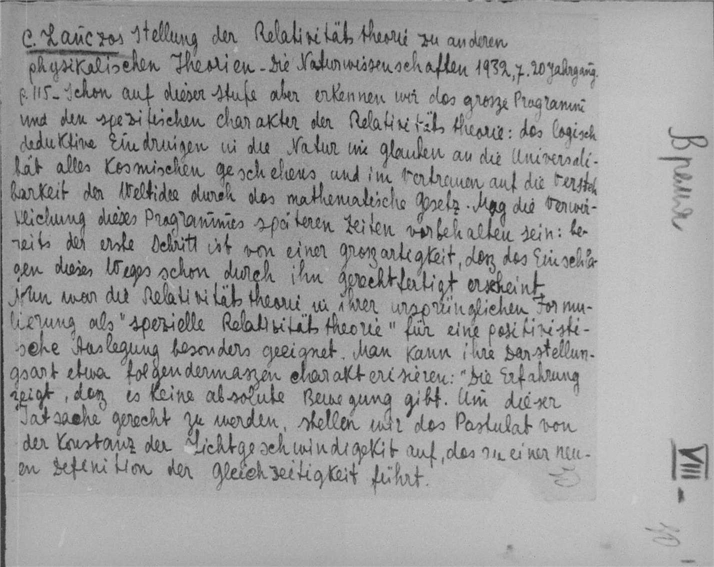 C. Lanczos Stellung der Relativitätstheorie zu anderen
physikalischen Theorien - Die Naturwissenschaften 1932, 7. 20 Jahrgang.
p. 115 - Schon auf dieser Stufe aber erkennen wir das grosze Programm
und den spezifischen charakter der Relativitätstheorie: das logisch
deduktive Eindringen in die Natur im glauben an die Universali-
tät alles Kosmischen geschehens und im Vertrauen auf die Versteh
barkeit der Weltidee durch das mathematische gesetz. Mag die Verwir-
klichung dieses Programmes späteren Zeiten vorbehalten sein: be-
reits der erste Schritt ist von einer groszartigkeit, dasz das Einschla-
gen dieses Weges schon durch ihn gerechtfertigt erscheint
Nun war die Relativitätstheorie in ihrer ursprünglichen Formu-
lierung als "spezielle Relativitätstheorie" für eine positivisti-
sche Auslegung besonders geeignet. Man kann ihre Darstellun-
gsart etwa folgendermaszen charakterisieren: "Die Erfahrung
zeigt, dasz es keine absolute Bewegung gibt. Um dieser
Tatsache gerecht zu werden, stellen wir das Pastulat von
der Konstanz der Lichtgeschwindigekit auf, das zu einer neu-
en Definition der gleichzeitigkeit führt.
Время
VIII -